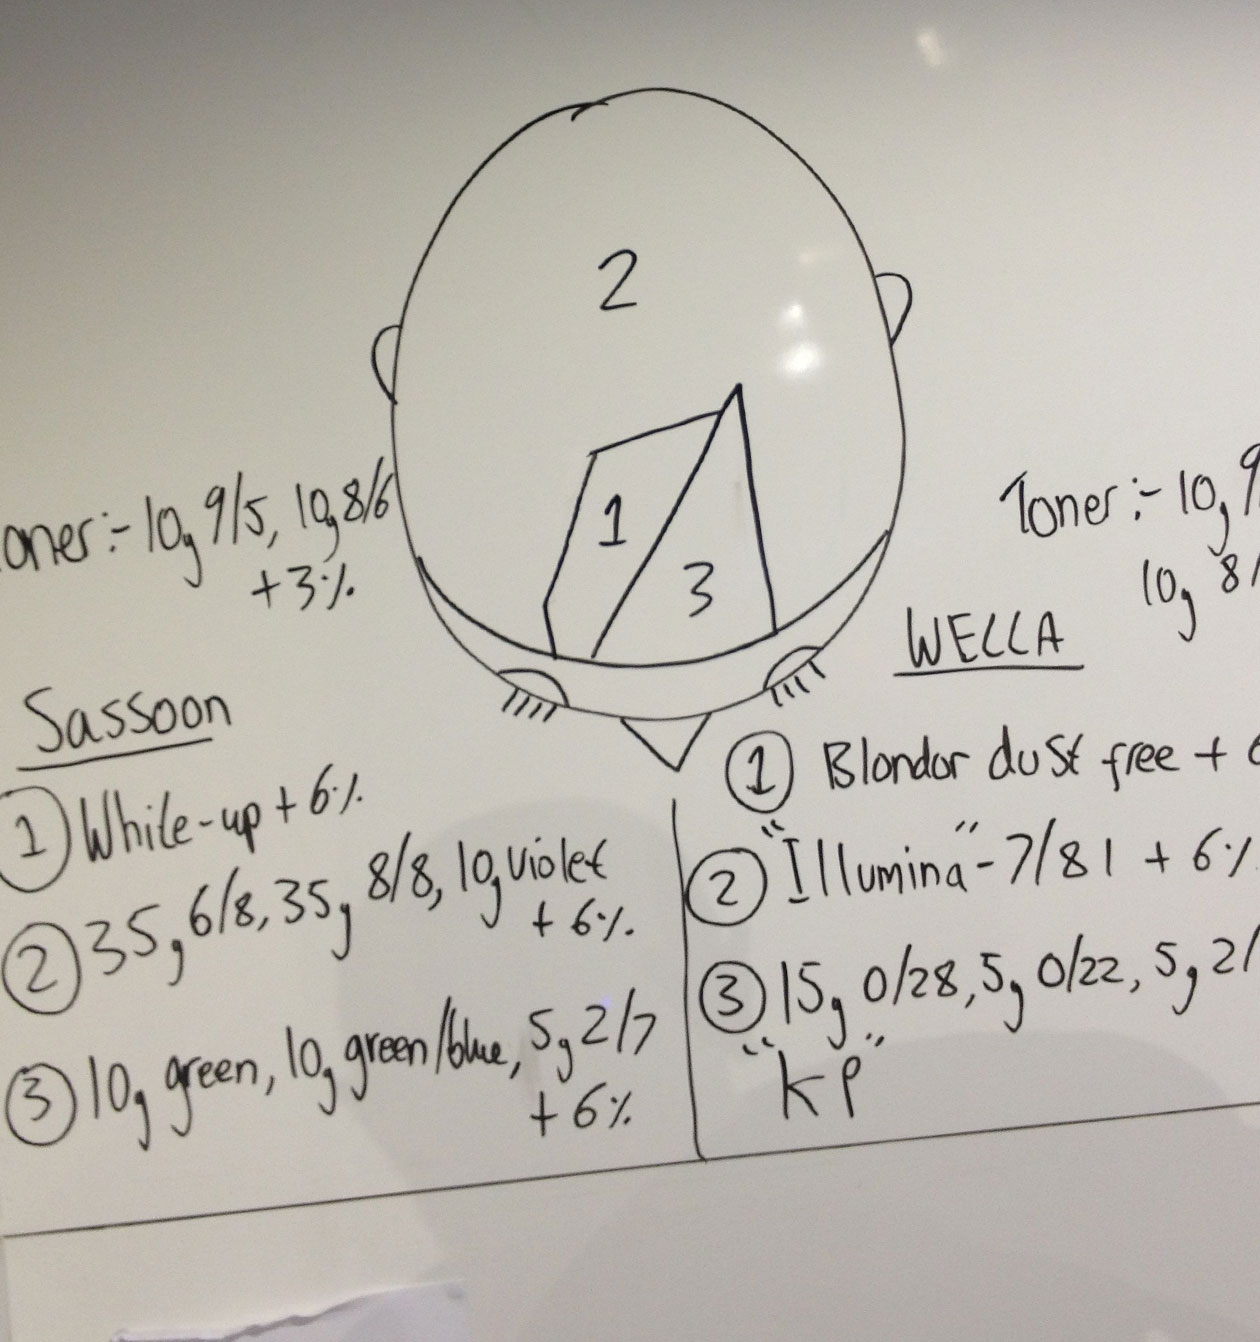 2
1
3
oner:- 10g 9/5, 10g 8/6
+3%
Toner:- 10g 9
10g 8/
Sassoon
1 White-up + 6%
2 35g 6/8, 35g 8/8, 10g violet
+ 6%
3 10g green, 10g green/blue, 5g 2/7
+ 6%
WELLA
1 Blondor dust free +
2 "Illumina" - 7/81 + 6%
3 15g 0/28, 5g 0/22, 5g 2/
"KP"